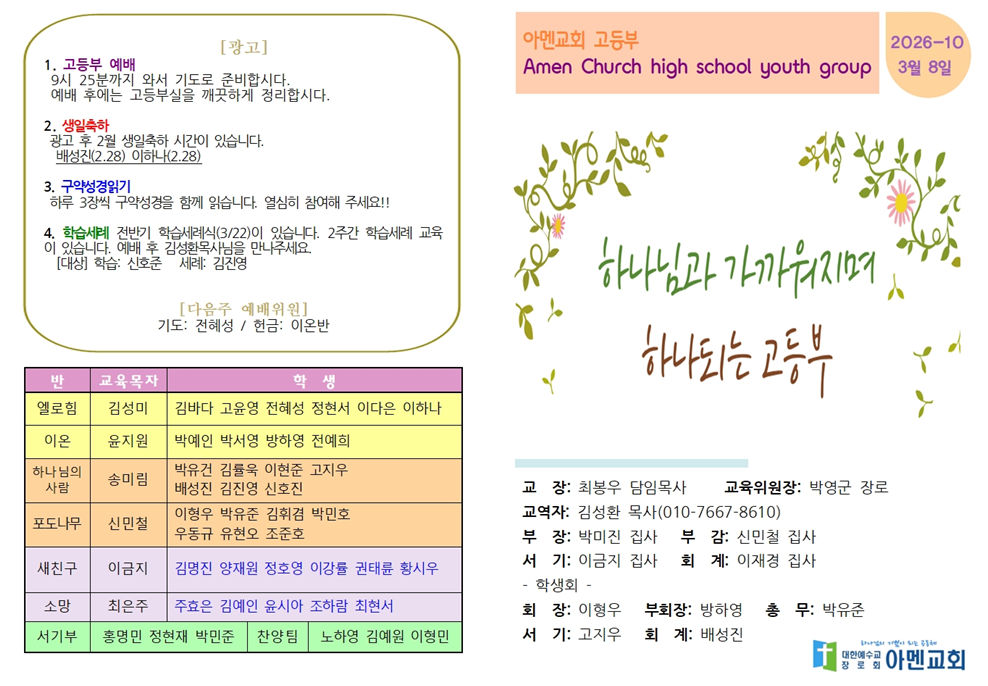 [광고]
1. 고등부 예배
9시 25분까지 와서 기도로 준비합시다.
예배 후에는 고등부실을 깨끗하게 정리합시다.
2. 생일축하
광고 후 2월 생일축하 시간이 있습니다.
배성진(2.28) 이하나(2.28)
3. 구약성경읽기
하루 3장씩 구약성경을 함께 읽습니다. 열심히 참여해 주세요!!
4. 학습세례 전반기 학습세례식(3/22)이 있습니다. 2주간 학습세례 교육
이 있습니다. 예배 후 김성환목사님을 만나주세요.
[대상] 학습: 신호준 세례: 김진영
[다음주 예배위원]
기도: 전혜성 / 헌금: 이온반
반 교육목자 학 생
엘로힘 김성미 김바다 고윤영 전혜성 정현서 이다은 이하나
이온 윤지원 박예인 박서영 방하영 전예희
하나님의
사람 송미림 박유건 김률욱 이현준 고지우
배성진 김진영 신호진
포도나무 신민철 이형우 박유준 김휘겸 박민호
우동규 유현오 조준호
새친구 이금지 김명진 양재원 정호영 이강률 권태윤 황시우
소망 최은주 주효은 김예인 윤시아 조하람 최현서
서기부 홍명민 정현재 박민준 찬양팀 노하영 김예원 이형민
아멘교회 고등부
Amen Church high school youth group
2026-10
3월 8일
하나님과 가까워지며
하나되는 고등부
교 장: 최봉우 담임목사 교육위원장: 박영군 장로
교역자: 김성환 목사(010-7667-8610)
부 장: 박미진 집사 부 감: 신민철 집사
서 기: 이금지 집사 회 계: 이재경 집사
- 학생회 -
회 장: 이형우 부회장: 방하영 총 무: 박유준
서 기: 고지우 회 계: 배성진
대한예수교
장로회 아멘교회